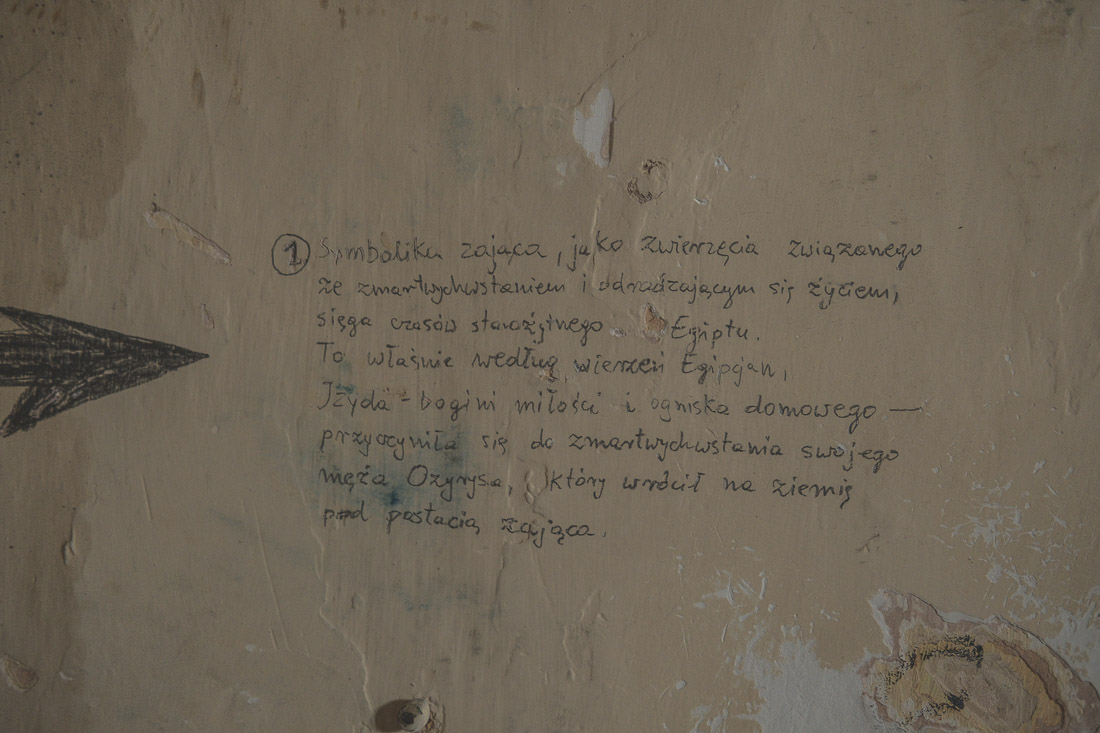 ① Symbolika zająca, jako zwierzęcia związanego
ze zmartwychwstaniem i odradzającym się życiem,
sięga czasów starożytnego Egiptu.
To właśnie według wierzeń Egipcjan,
Izyda - bogini miłości i ogniska domowego —
przyczyniła się do zmartwychwstania swojego
męża Ozyrysa, który wrócił na ziemię
pod postacią zająca.